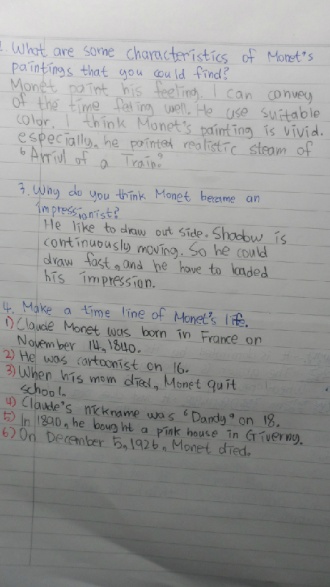 . What are some characteristics of Monet's
paintings that you could find?
Monet paint his feeling. I can convey
of the time feeling well. He use suitable
color. I think Monet's painting is vivid.
especially, he pointed realistic steam of
Arrivl of a Train?
3. Why do you think Monet became an
impressionist?
He like to draw out side. Shadow is
continuously moving. So he could
draw fast, and he have to loaded
his impression.
4. Make a time line of Monet's life.
1) Claude Monet was born in France on
November 14, 1840.
2) He was cartoonist on 16.
3) When his mom died, Monet quit
school.
4) Claude's nickname was "Dandy" on 18.
5) In 1890, he bought a pink house in Giverny.
6) On December 5, 1926, Monet died.